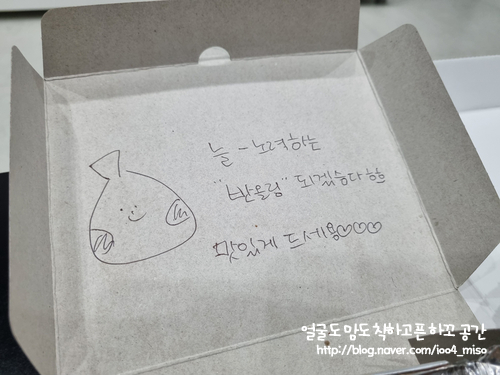 늘 - 노력하는
"반올림" 되겠슴다 핳
맛있게 드세용♡♡♡
얼굴도 맘도 착하고픈 하꼬 공간
http://blog.naver.com/ioo4_miso